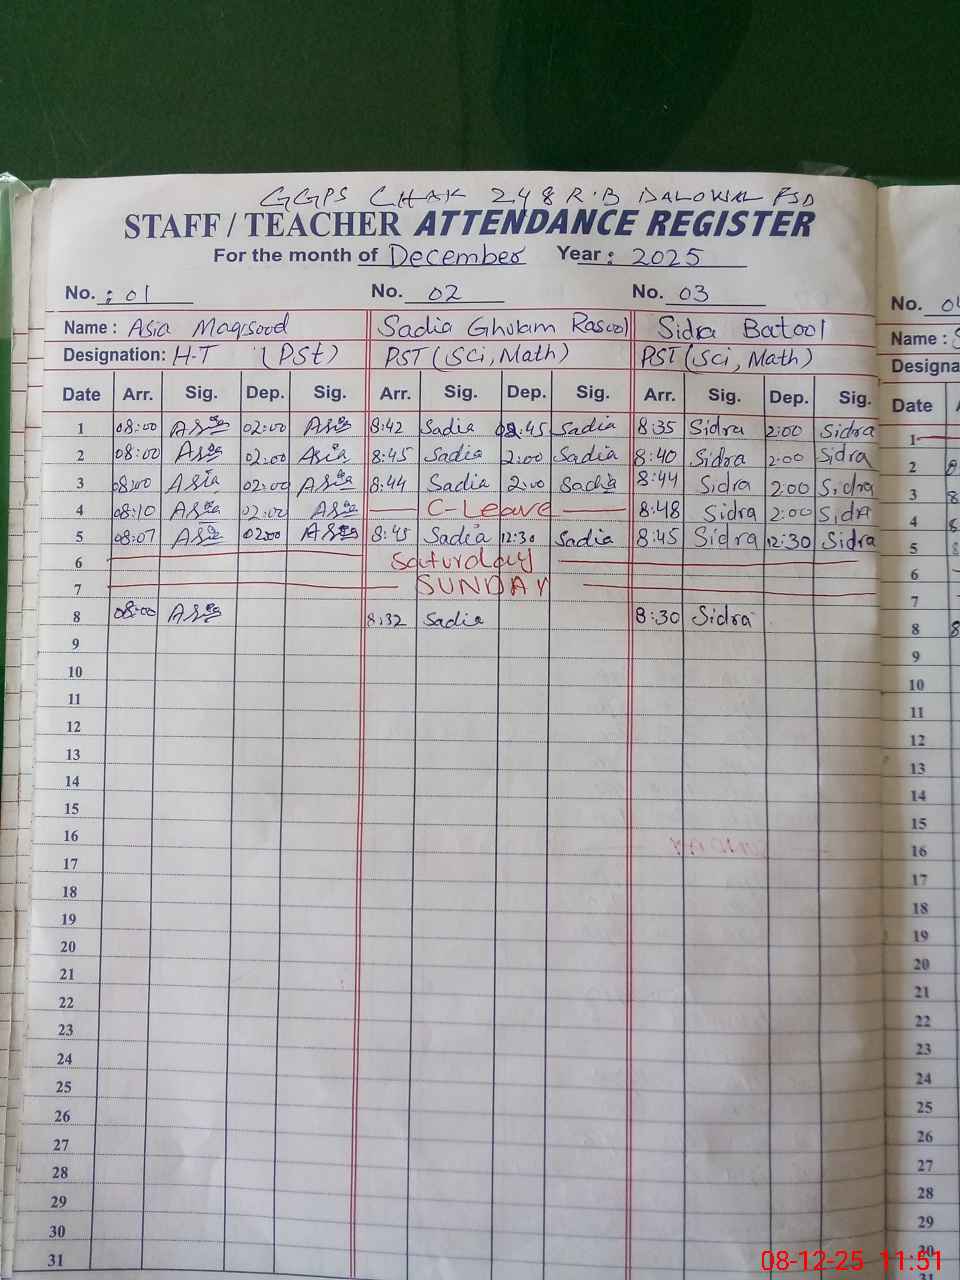 GGPS CHAK 248 R.B DALOWAL FSD
STAFF / TEACHER ATTENDANCE REGISTER
For the month of December Year : 2025
No. : 01 No. 02 No. 03 No. 04
Name : Asia Maqsood Sadia Ghulam Rasool Sidra Batool Name : S
Designation: H-T (PSt) PST (Sci, Math) PST (Sci, Math) Designa
Date Arr. Sig. Dep. Sig. Arr. Sig. Dep. Sig. Arr. Sig. Dep. Sig. Date A
1 08:00 Asia 02:00 Asia 8:42 Sadia 02:45 Sadia 8:35 Sidra 2:00 Sidra 1
2 08:00 Asia 02:00 Asia 8:45 Sadia 2:00 Sadia 8:40 Sidra 2:00 Sidra 2 8
3 08:00 Asia 02:00 Asia 8:44 Sadia 2:00 Sadia 8:44 Sidra 2:00 Sidra 3 8
4 08:10 Asia 02:00 Asia C-Leave 8:48 Sidra 2:00 Sidra 4 8
5 08:07 Asia 02:00 Asia 8:45 Sadia 12:30 Sadia 8:45 Sidra 12:30 Sidra 5 8
6 Saturday 6
7 SUNDAY 7
8 08:00 Asia 8:32 Sadia 8:30 Sidra 8 8
9 9
10 10
11 11
12 12
13 13
14 14
15 15
16 16
17 17
18 18
19 19
20 20
21 21
22 22
23 23
24 24
25 25
26 26
27 27
28 28
29 29
30 30
31 31
08-12-25 11:51